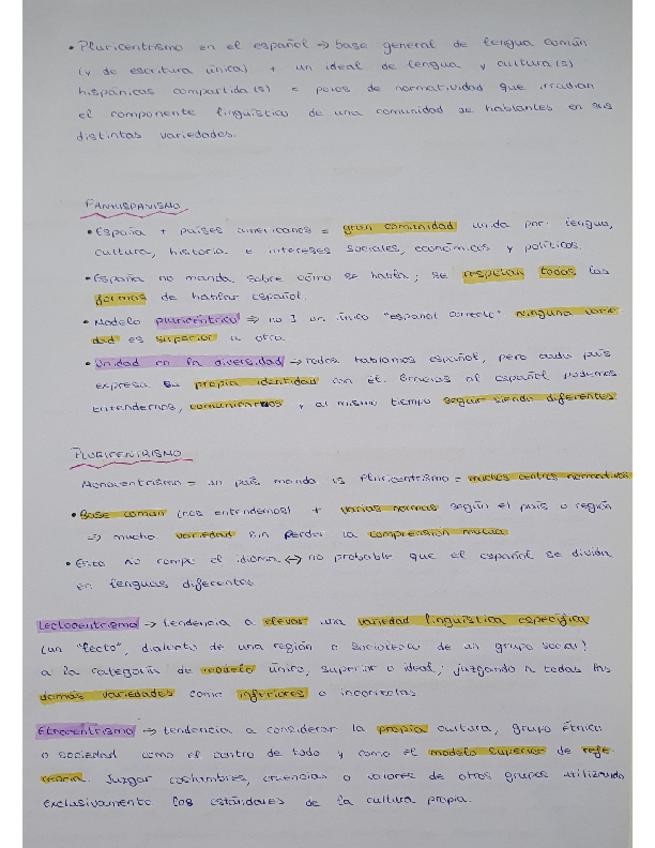 • Pluricentrismo en el español → base general de lengua común
(y de escritura única) + un ideal de lengua y cultura(s)
hispánicas compartida(s) = polos de normatividad que irradian
el componente lingüístico de una comunidad de hablantes en sus
distintas variedades.
PANHISPANISMO
• España + países americanos = gran comunidad unida por: lengua,
cultura, historia e intereses sociales, económicos y políticos.
• España no manda sobre cómo se habla; se respetan todas las
formas de hablar español.
• Modelo pluricéntrico ⇒ no ∃ un único "español correcto" ninguna varie-
dad es superior a otra.
• Unidad en la diversidad → todos hablamos español, pero cada país
expresa su propia identidad con él. Gracias al español podemos
entendernos, comunicarnos y al mismo tiempo seguir siendo diferentes
PLURICENTRISMO
Monocentrismo = un país manda vs Pluricentrismo = muchos centros normativos
• Base común (nos entendemos) + varias normas según el país o región
⇒ mucha variedad sin perder la comprensión mutua
• Esto no rompe el idioma ↔ no probable que el español se divida
en lenguas diferentes
Lectocentrismo → tendencia a elevar una variedad lingüística específica
(un "lecto", dialecto de una región o sociolecto de un grupo social)
a la categoría de modelo único, superior o ideal, juzgando a todas las
demás variedades como inferiores o incorrectas
Etnocentrismo → tendencia a considerar la propia cultura, grupo étnico
o sociedad como el centro de todo y como el modelo superior de refe-
rencia. Juzgar costumbres, creencias o valores de otros grupos utilizando
exclusivamente los estándares de la cultura propia.